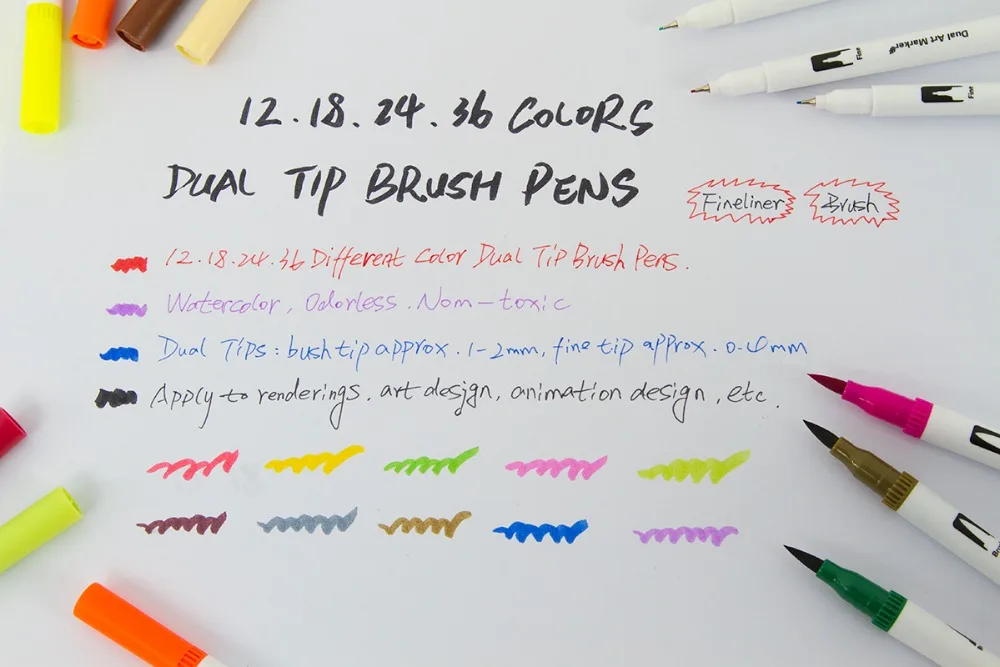 Fine
Dual Art Marker®
Fine
12.18.24.36 COLORS
DUAL TIP BRUSH PENS
Fineliner
Brush
12.18.24.36 Different Color Dual Tip Brush Pens.
Watercolor, Odorless. Nom-toxic
Dual Tips: bush tip approx. 1-2mm, fine tip approx. 0.4mm
Apply to renderings. art design, animation design, etc.